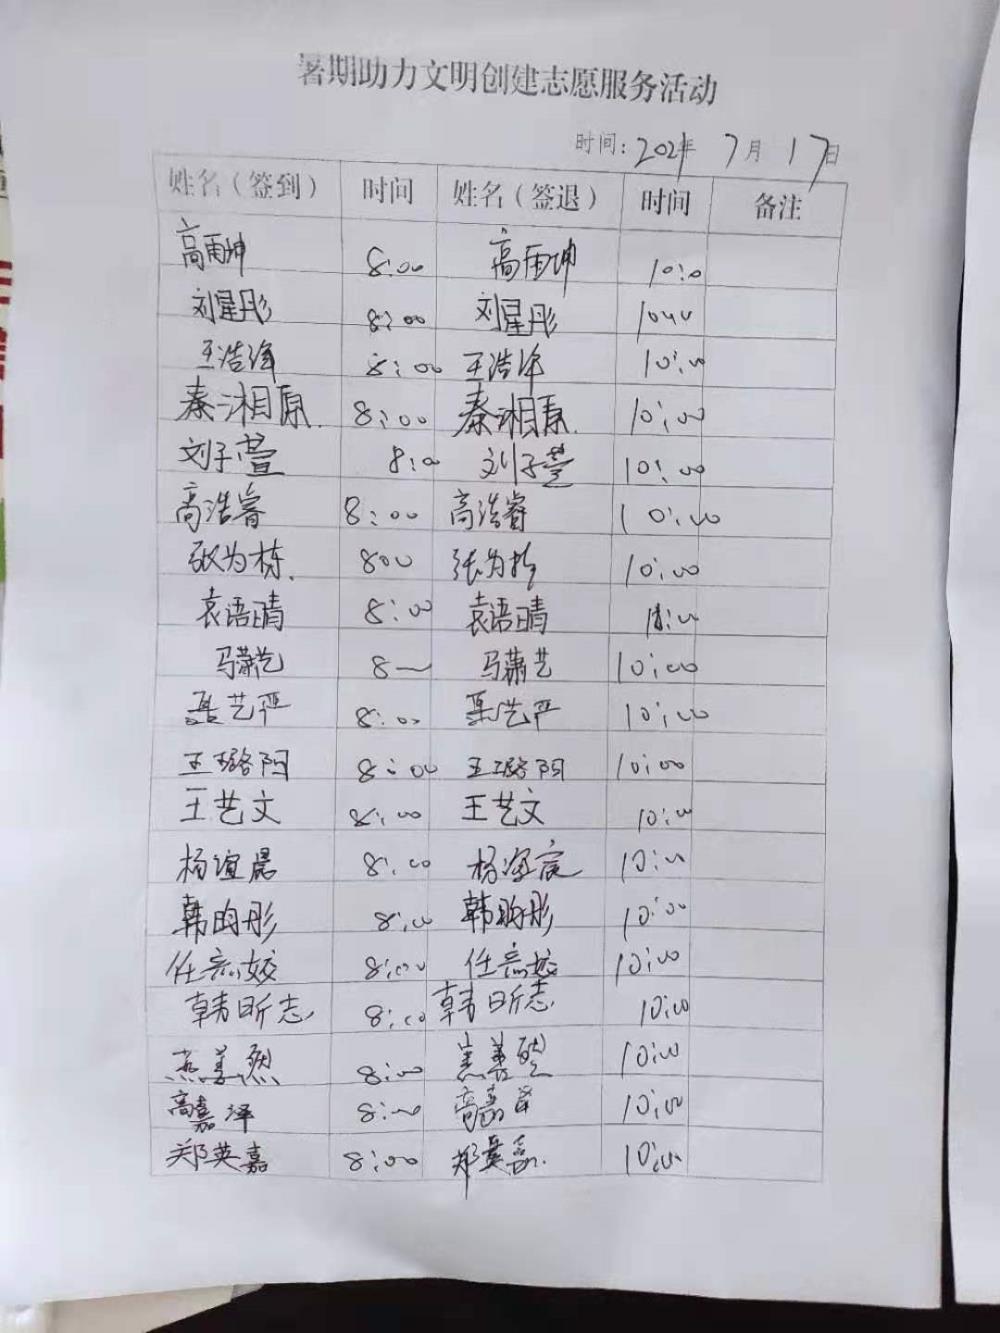 暑期助力文明创建志愿服务活动
时间: 2021年 7月 17日
姓名（签到） 时间 姓名（签退） 时间 备注
高雨坤 8:00 高雨坤 10:0
刘星彤 8:00 刘星彤 10:00
王浩泽 8:00 王浩泽 10:00
秦湘原. 8:00 秦湘原. 10:00
刘子萱 8:0 刘子萱 10:00
高浩睿 8:00 高浩睿 10:00
张为栋. 800 张为栋 10:00
袁语晴 8:00 袁语晴 10:00
马潇艺 8— 马萧艺 10:00
聂艺严 8:00 聂艺严 10:00
王璐阳 8:00 王璐阳 10:00
王艺文 8:00 王艺文 10:00
杨谊晨 8:00 杨谊宸 10:00
韩昀彤 8:00 韩昀彤 10:00
任姣 8:00 任姣 10:00
韩昕志 8:00 韩昕志 10:00
8:00 10:00
高嘉泽 8:00 高嘉 10:00
郑英嘉 8:00 郑英嘉. 10:00